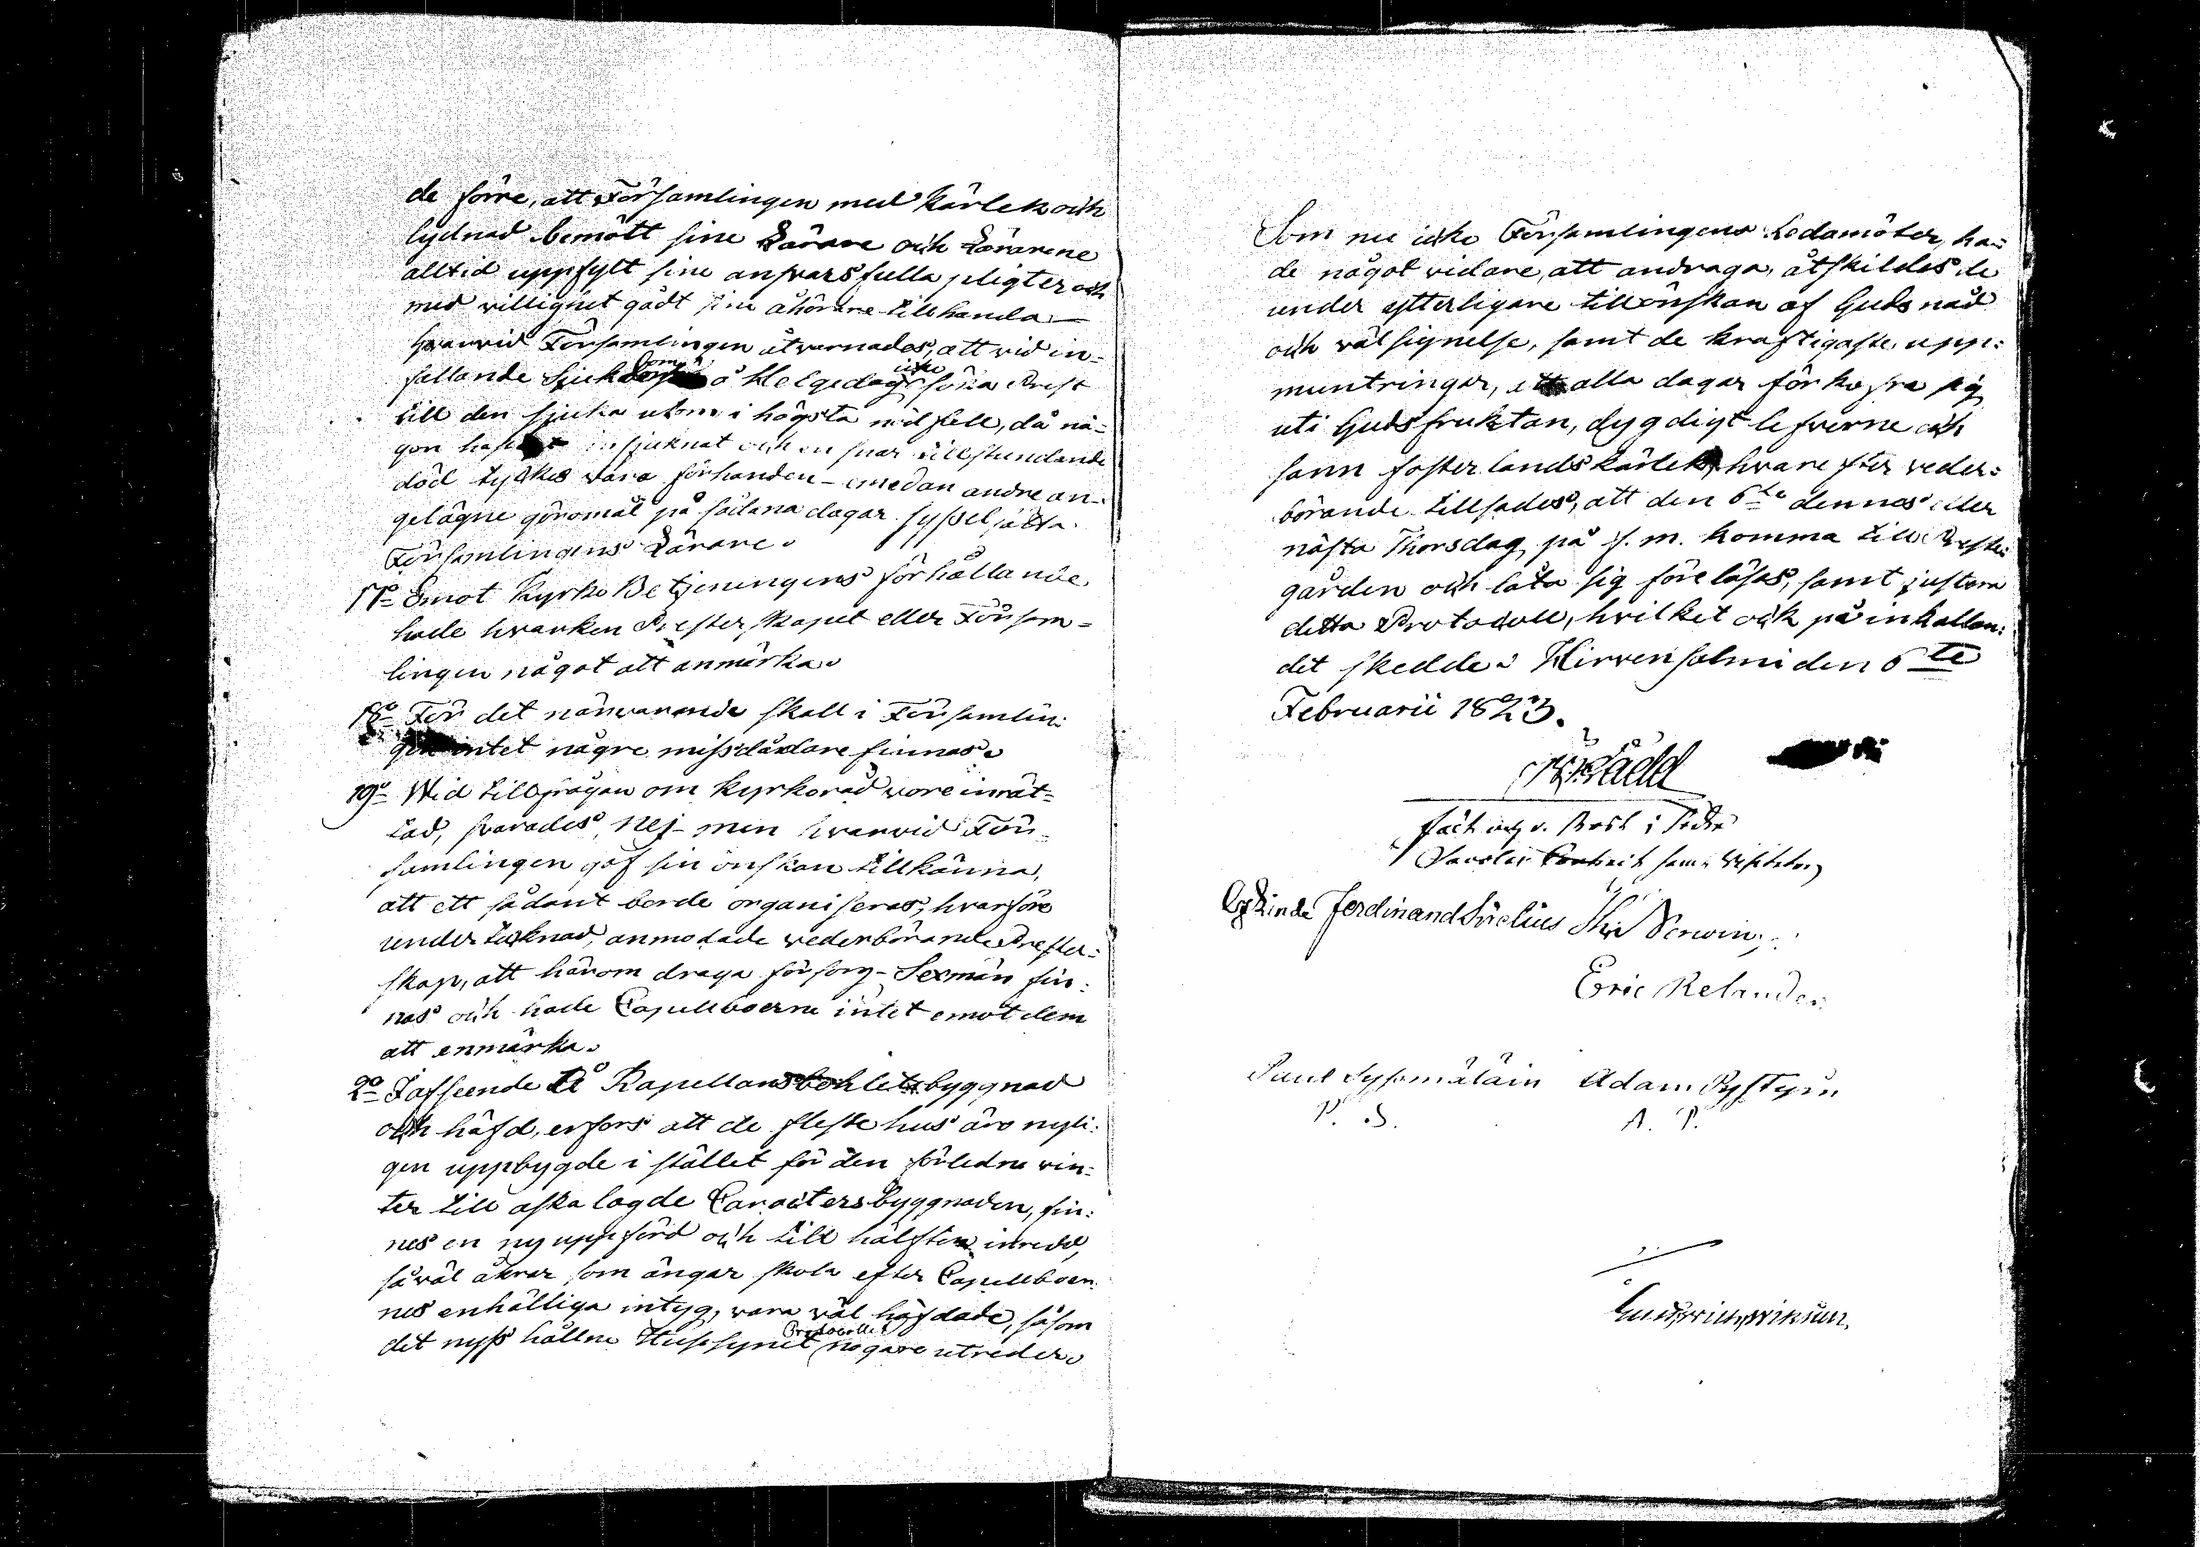 de förre, att Församlingen med kärlek och
lydnad bemött sine Lärare och Lärarene
alltid uppfylt sine ansvarsfulla pligter och
med villighet gådt sine åhörare tillhanda –
hvarvid Församlingen åtvarnades, att vid in-
fallande Sjukdom å Helgedagar icke söka Prest
till den sjuka utom i högsta nödfall, då nå-
gon hastigt insjuknat och en snar tillstundande
död tyckes vara förhanden – emedan andre an-
gelägne göromål på sådana dagar sysselsätta
Församlingens Lärare.
17o Emot Kyrko Betjeningens förhållande
hade hvarken Presterskapet eller Försam-
lingen något att anmärka.
18o För det närvarande skall i Församlin-
gen intet några missdådare finnas.
19o Wid tillfrågan om kyrkoråd vore inrät-
tad, svarades Nej – men hvarvid För-
samlingen gaf sin önskan tillkänna,
att ett sådant borde organiseras, hvarföre
undertecknad, anmodade vederbörande Prester-
skap, att härom draga försorg – Sexmän fin-
nas och hade Capellboerne intet emot dem
att enmärka.
2o I afseende å Kapellansbohlets byggnad
och häfd, erfors att de fleste hus äro nyli-
gen uppbygde i stället för den förledne vin-
ter till aska lagde Caractersbyggnaden, fin-
nes en ny uppförd och till hälften inredd,
såväl åkrar som ängar skola efter Capellboer-
nes enhälliga intyg, vara väl häfdade, såsom
det nyss hållne Hussynet Protocollet nogare utreder.
Som nu icke Församlingens Ledamöter, ha-
de något vidare, att andraga, åtskildes de
under ytterligare tillönskan af Guds nåd
och välsignelse, samt de kraftigaste upp-
muntringar, att alla dagar förkofra sig
uti Gudsfruktan, dygdigt lefverne och
sann fosterlandskärlek, hvarefter veder-
börande tillsades, att den 6te dennes eller
nästa Thorsdag på f. m. komma till Preste-
gården och låta sig föreläsas, samt justera
detta Protocoll, hvilket ock på inkallan-
det skedde. Hirvensalmi den 6te
Februarii 1823.
Ferdinand
Eric Relander
Paul Adam
P. S. A. P.